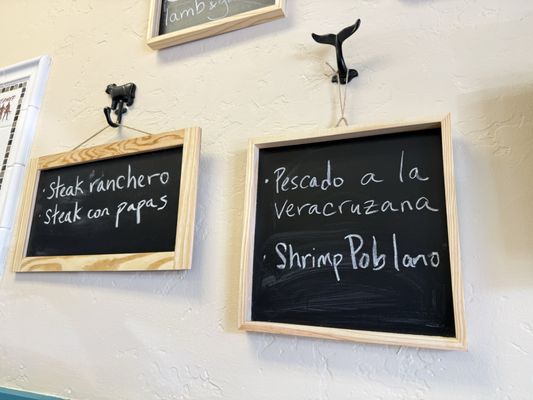 lamb &
• Steak ranchero
Steak con papas
• Pescado a la
Veracruzana
• Shrimp Poblano